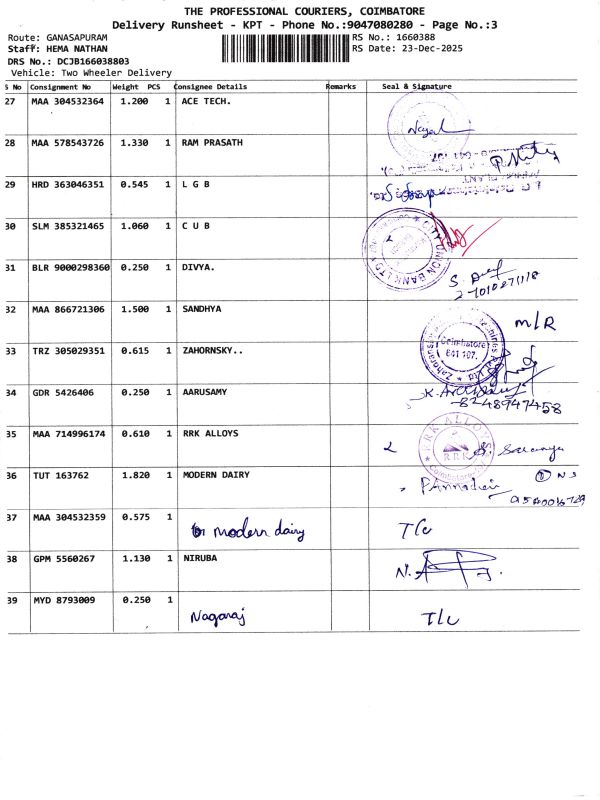 THE PROFESSIONAL COURIERS, COIMBATORE
Delivery Runsheet - KPT - Phone No.:9047080280 - Page No.:3
Route: GANASAPURAM
RS No.: 1660388
Staff: HEMA NATHAN
RS Date: 23-Dec-2025
DRS No.: DCJB166038803
Vehicle: Two Wheeler Delivery
S No Consignment No Weight PCS Consignee Details Remarks Seal & Signature
27 MAA 304532364 1.200 1 ACE TECH.
28 MAA 578543726 1.330 1 RAM PRASATH
29 HRD 363046351 0.545 1 L G B
30 SLM 385321465 1.060 1 C U B
CITY UNION BANK LTD
31 BLR 9000298360 0.250 1 DIVYA.
32 MAA 866721306 1.500 1 SANDHYA M/R
33 TRZ 305029351 0.615 1 ZAHORNSKY..
Coimbatore
641 107.
34 GDR 5426406 0.250 1 AARUSAMY
8248947458
35 MAA 714996174 0.610 1 RRK ALLOYS
RRK ALLOYS
RRK
Coimbatore
36 TUT 163762 1.820 1 MODERN DAIRY
37 MAA 304532359 0.575 1 modern dairy T/c
38 GPM 5560267 1.130 1 NIRUBA
39 MYD 8793009 0.250 1 Nagaraj T/c